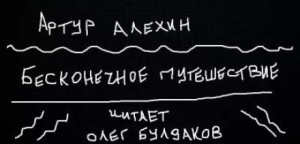 Артур Алехин
Бесконечное путешествие
читает
Олег Булдаков